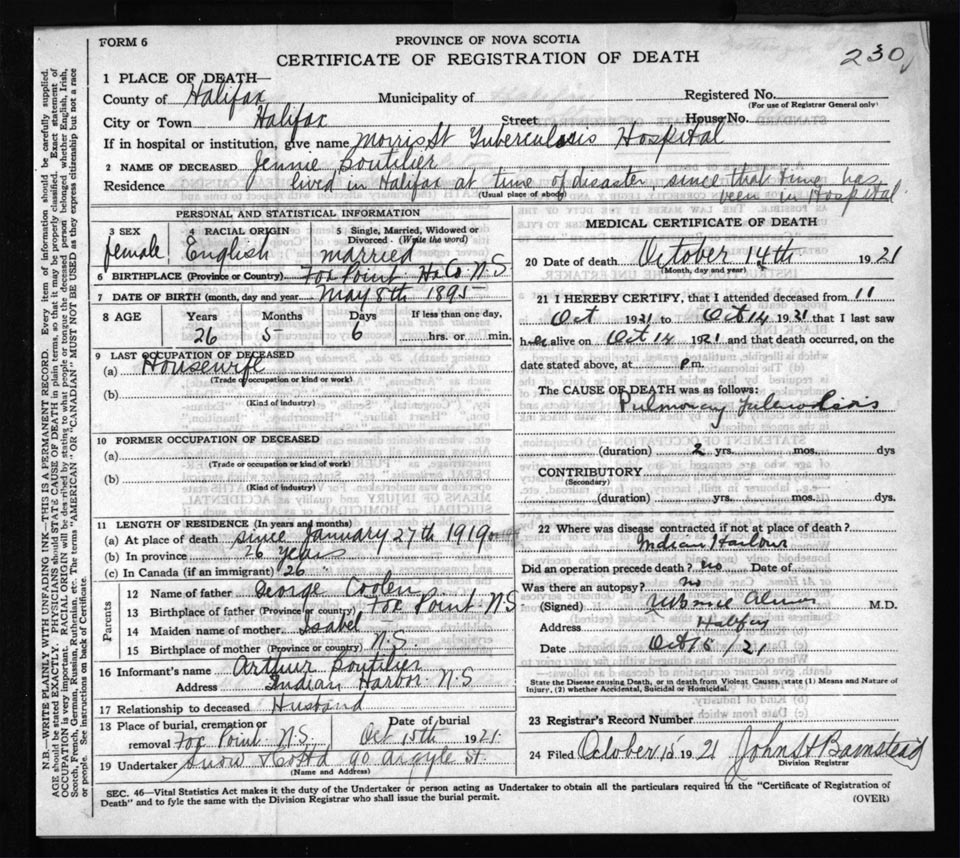 FORM 6
PROVINCE OF NOVA SCOTIA
CERTIFICATE OF REGISTRATION OF DEATH
230
1 PLACE OF DEATH—
County of Halifax Municipality of Registered No.
(For use of Registrar General only)
City or Town Halifax Street House No.
If in hospital or institution, give name Morris St Tuberculosis Hospital
2 NAME OF DECEASED Jennie Boutilier
Residence lived in Halifax at time of disaster, since that time has
(Usual place of abode) been in Hospital
PERSONAL AND STATISTICAL INFORMATION
3 SEX 4 RACIAL ORIGIN 5 Single, Married, Widowed or
Divorced - (Write the word)
female English married
6 BIRTHPLACE (Province or Country) Fox Point Hx Co N.S
7 DATE OF BIRTH (month, day and year) May 8th 1895
8 AGE Years Months Days If less than one day,
26 5 6 hrs. or min.
9 LAST OCCUPATION OF DECEASED
(a) Housewife
(Trade or occupation or kind or work)
(b)
(Kind of industry)
10 FORMER OCCUPATION OF DECEASED
(a)
(Trade or occupation or kind of work)
(b)
(Kind of Industry)
11 LENGTH OF RESIDENCE (In years and months)
(a) At place of death since January 27th 1919
(b) In province 26 years
(c) In Canada (if an immigrant) 26 "
Parents
12 Name of father George Coolen
13 Birthplace of father (Province or country) Fox Point N S
14 Maiden name of mother Isabel
15 Birthplace of mother (Province or country) N.S.
16 Informant's name Arthur Boutilier
Address Indian Harbor N.S
17 Relationship to deceased Husband
13 Place of burial, cremation or Date of burial
removal Fox Point N.S. Oct 15th 1921
19 Undertaker Snow & Co Ltd 90 Argyle St.
(Name and Address)
MEDICAL CERTIFICATE OF DEATH
20 Date of death October 14th 1921
(Month, day and year)
21 I HEREBY CERTIFY, that I attended deceased from 11
Oct 1921 to Oct 14 1921 that I last saw
her alive on Oct 14 1921 and that death occurred, on the
date stated above, at P m.
The CAUSE OF DEATH was as follows:
Pulmonary Tuberculosis
(duration) 2 yrs. mos. dys
CONTRIBUTORY
(Secondary)
(duration) yrs. mos. dys.
22 Where was disease contracted if not at place of death?
Indian Harbour
Did an operation precede death? no Date of
Was there an autopsy? No
(Signed) M.D.
Address Halifax
Date Oct 15 / 21
State the Disease causing Death, or in death from Violent Causes, state (1) Means and Nature of
Injury, (2) whether Accidental, Suicidal or Homicidal.
23 Registrar's Record Number
24 Filed October 15 1921 John H Barnstead
Division Registrar
SEC. 46—Vital Statistics Act makes it the duty of the Undertaker or person acting as Undertaker to obtain all the particulars required in the "Certificate of Registration of
Death" and to fyle the same with the Division Registrar who shall issue the burial permit.
(OVER)
N.B.—WRITE PLAINLY WITH UNFADING INK—THIS IS A PERMANENT RECORD. Every item of information should be carefully supplied.
AGE should be stated EXACTLY. PHYSICIANS should STATE CAUSE OF DEATH in plain terms, so that it may be properly classified. Exact statement of
OCCUPATION is very important. RACIAL ORIGIN will be described by stating to what people or tongue the deceased person belonged, whether English, Irish,
Scotch, French, German, Russian, Ruthenian, etc. The terms "AMERICAN" OR "CANADIAN" MUST NOT BE USED as they express citizenship but not a race
or people. See instructions on back of Certificate.